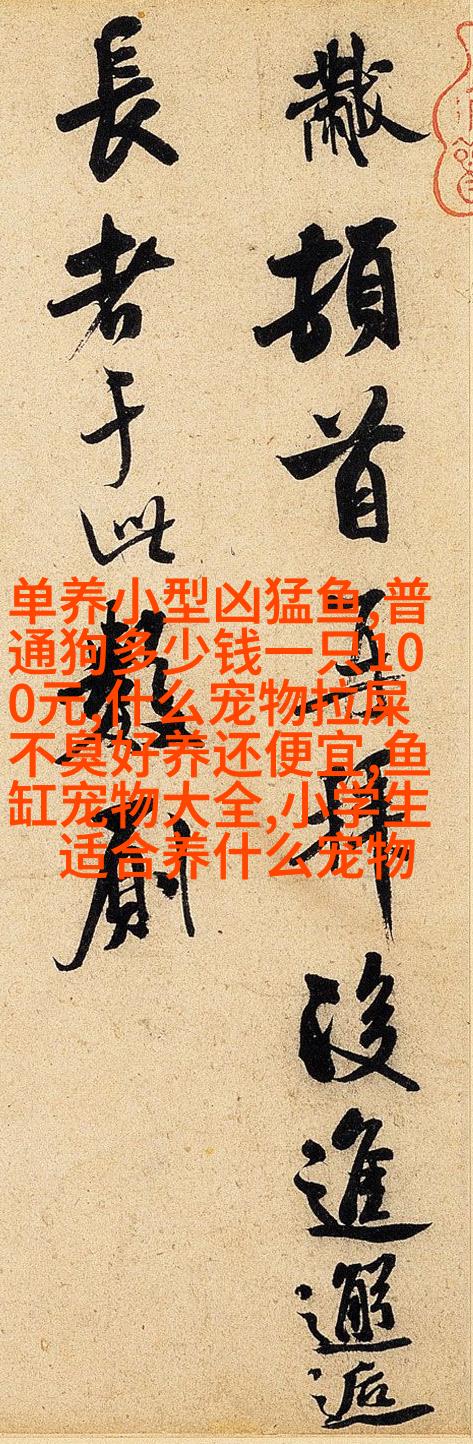 黻頓首再拜後進邂逅
長者于此數厠
单养小型凶猛鱼,普
通狗多少钱一只10
0元,什么宠物拉屎
不臭好养还便宜,鱼
缸宠物大全,小学生
适合养什么宠物